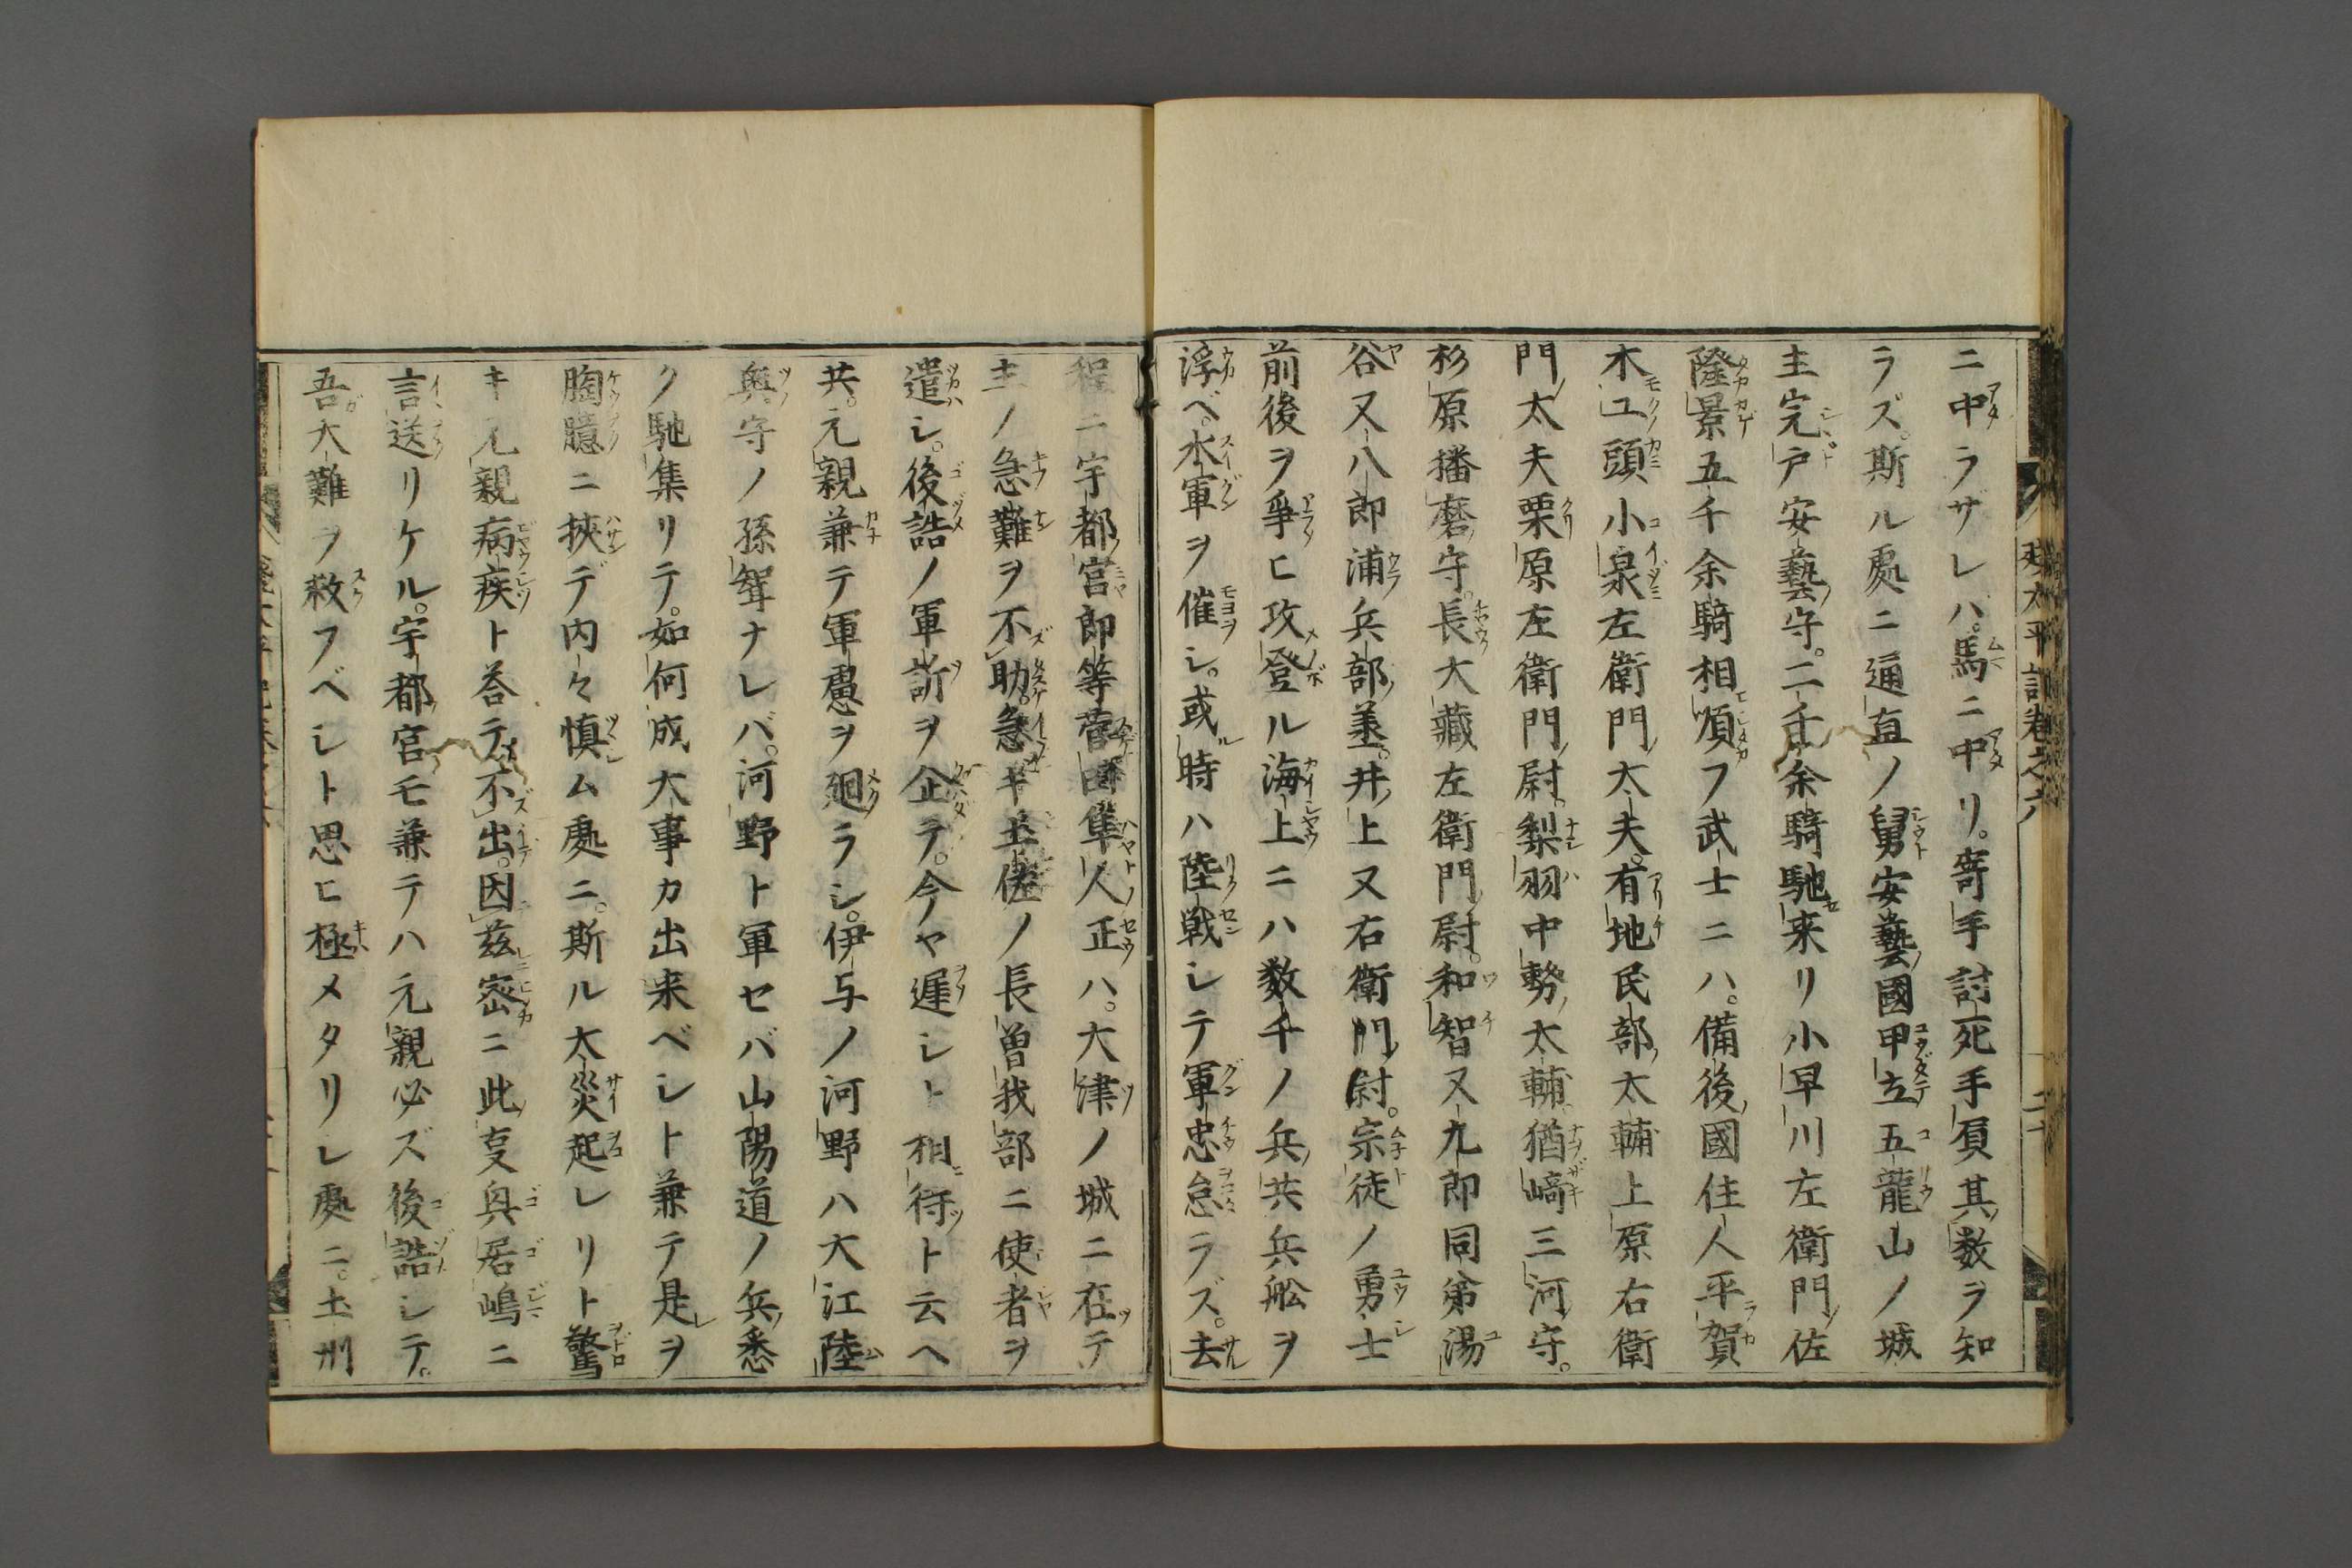 ニ中ラザレハ。馬ニ中リ。寄手討死手負其数ヲ知
ラズ。斯ル處ニ通直ノ舅安藝國甲立五龍山ノ城
主宍戸安藝守。二千余騎馳来リ小早川左衛門佐
隆景五千余騎相順フ武士ニハ。備後國住人平賀
木工頭小泉左衛門太夫。有地民部太輔上原右衛
門太夫栗原左衛門尉。梨羽中務太輔。猶﨑三河守。
杉原播磨守。長大藏左衛門尉。和智又九郎同弟湯
谷又八郎浦兵部丞。井上又右衛門尉。宗徒ノ勇士
前後ヲ爭ヒ攻登ル海上ニハ数千ノ兵共兵舩ヲ
浮べ。水軍ヲ催シ。或時ハ陸戦シテ軍忠怠ラズ。去
程ニ宇都宮郎等菅田隼人正ハ。大津ノ城ニ在テ
主ノ急難ヲ不助。急ギ土佐ノ長曽我部ニ使者ヲ
遣シ。後詰ノ軍訴ヲ企テ。今ヤ遅シト相待ト云ヘ
共。元親兼テ軍慮ヲ廻ラシ。伊与ノ河野ハ大江陸
奥守ノ孫聟ナレバ。河野ト軍セバ山陽道ノ兵悉
ク馳集リテ。如何成大事カ出来ベシト兼テ是ヲ
胸臆ニ挾デ内々慎ム處ニ。斯ル大災起レリト驚
キ元親病疾ト荅テ不出。因茲密ニ此叓與居嶋ニ
言送リケル。宇都宮モ兼テハ元親必ズ後詰シテ。
吾大難ヲ救フベシト思ヒ極メタリレ處ニ。土州